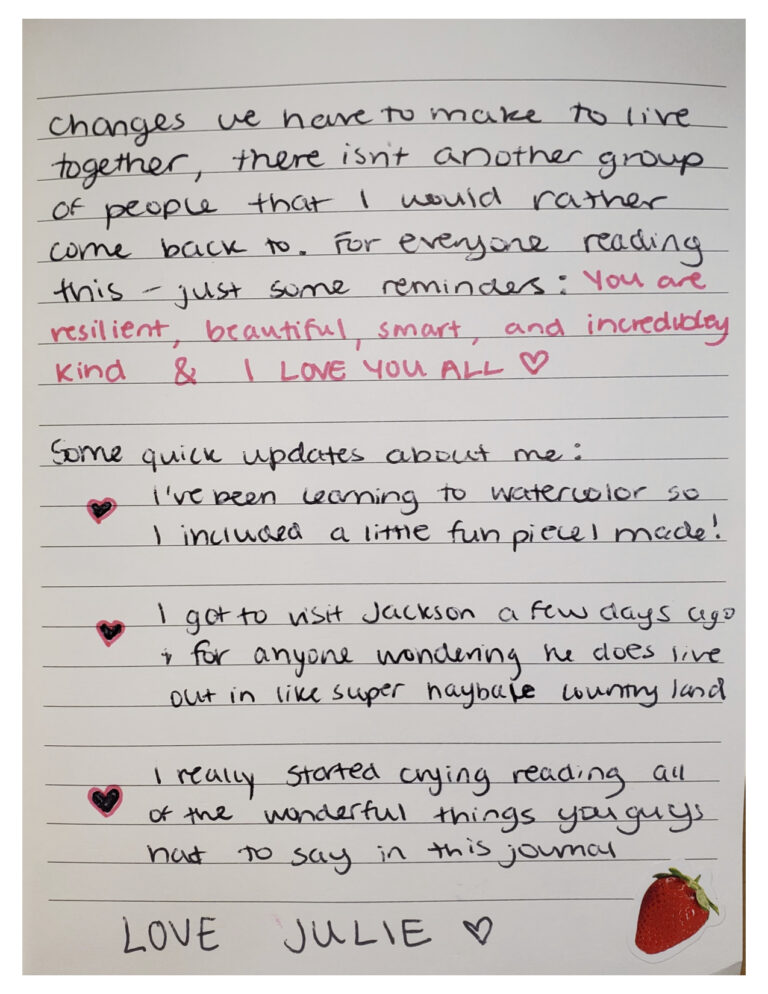 changes we have to make to live
together, there isn't another group
of people that I would rather
come back to. For everyone reading
this - just some reminders: You are
resilient, beautiful, smart, and incredibley
kind & I LOVE YOU ALL ♡
Some quick updates about me:
I've been learning to watercolor so
I included a little fun piece I made!
I got to visit Jackson a few days ago
& for anyone wondering he does live
out in like super haybale country land
I really started crying reading all
of the wonderful things you guys
had to say in this journal
LOVE JULIE ♡